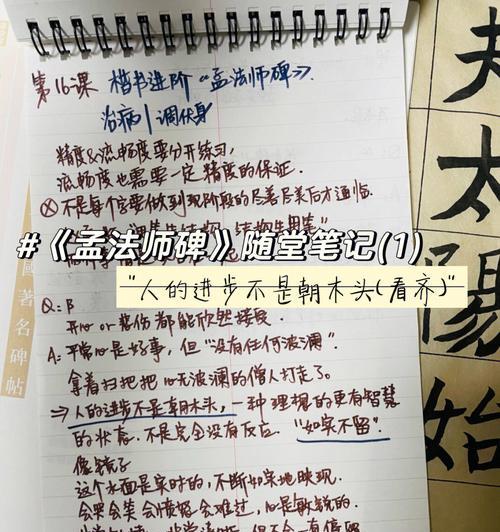 第16课 楷书进阶《孟法师碑》
治病|调伏身
精度&流畅度要分开练习,
流畅度也需要一定精度的保证.
ⓧ不是每个字要做到现阶段的尽善尽美后才通临.
#《孟法师碑》随堂笔记(1)
"人的进步不是朝木头(看齐)"
Q:B
开心or悲伤都能欣然接受.
A:平常心是好事,但"没有任何波澜".
拿着扫把把心无波澜的僧人打走了.
⇒人的进步不是朝木头,一种理想的更有智慧
的状态.不是完全没有反应."如实不留".
像镜子
这个水面是实时的,不断如实地映现.
会哭会笑会愤怒会难过,心是解脱的.
國著名碑帖
夫
太
陽
始